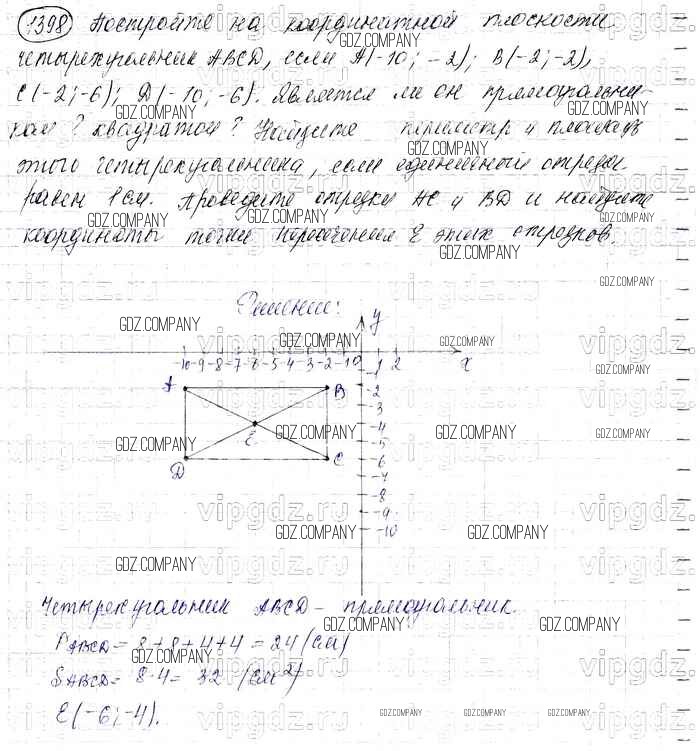 1398 Постройте на координатной плоскости
четырехугольник ABCD, если A(-10; -2); B(-2; -2),
C(-2; -6); D(-10; -6). Является ли он прямоугольни-
ком? квадратом? Найдите периметр и площадь
этого четырехугольника, если единичный отрезок
равен 1 см. Проведите отрезки AC и BD и найдите
координаты точки пересечения E этих отрезков.
Решение:
y
-10 -9 -8 -7 -6 -5 -4 -3 -2 -1 0 1 2 x
A B
E
D C
-1
-2
-3
-4
-5
-6
-7
-8
-9
-10
Четырехугольник ABCD - прямоугольник.
P ABCD = 8 + 8 + 4 + 4 = 24 (см)
S ABCD = 8·4 = 32 (см²)
E(-6; -4).
GDZ.COMPANY
vipgdz.ru